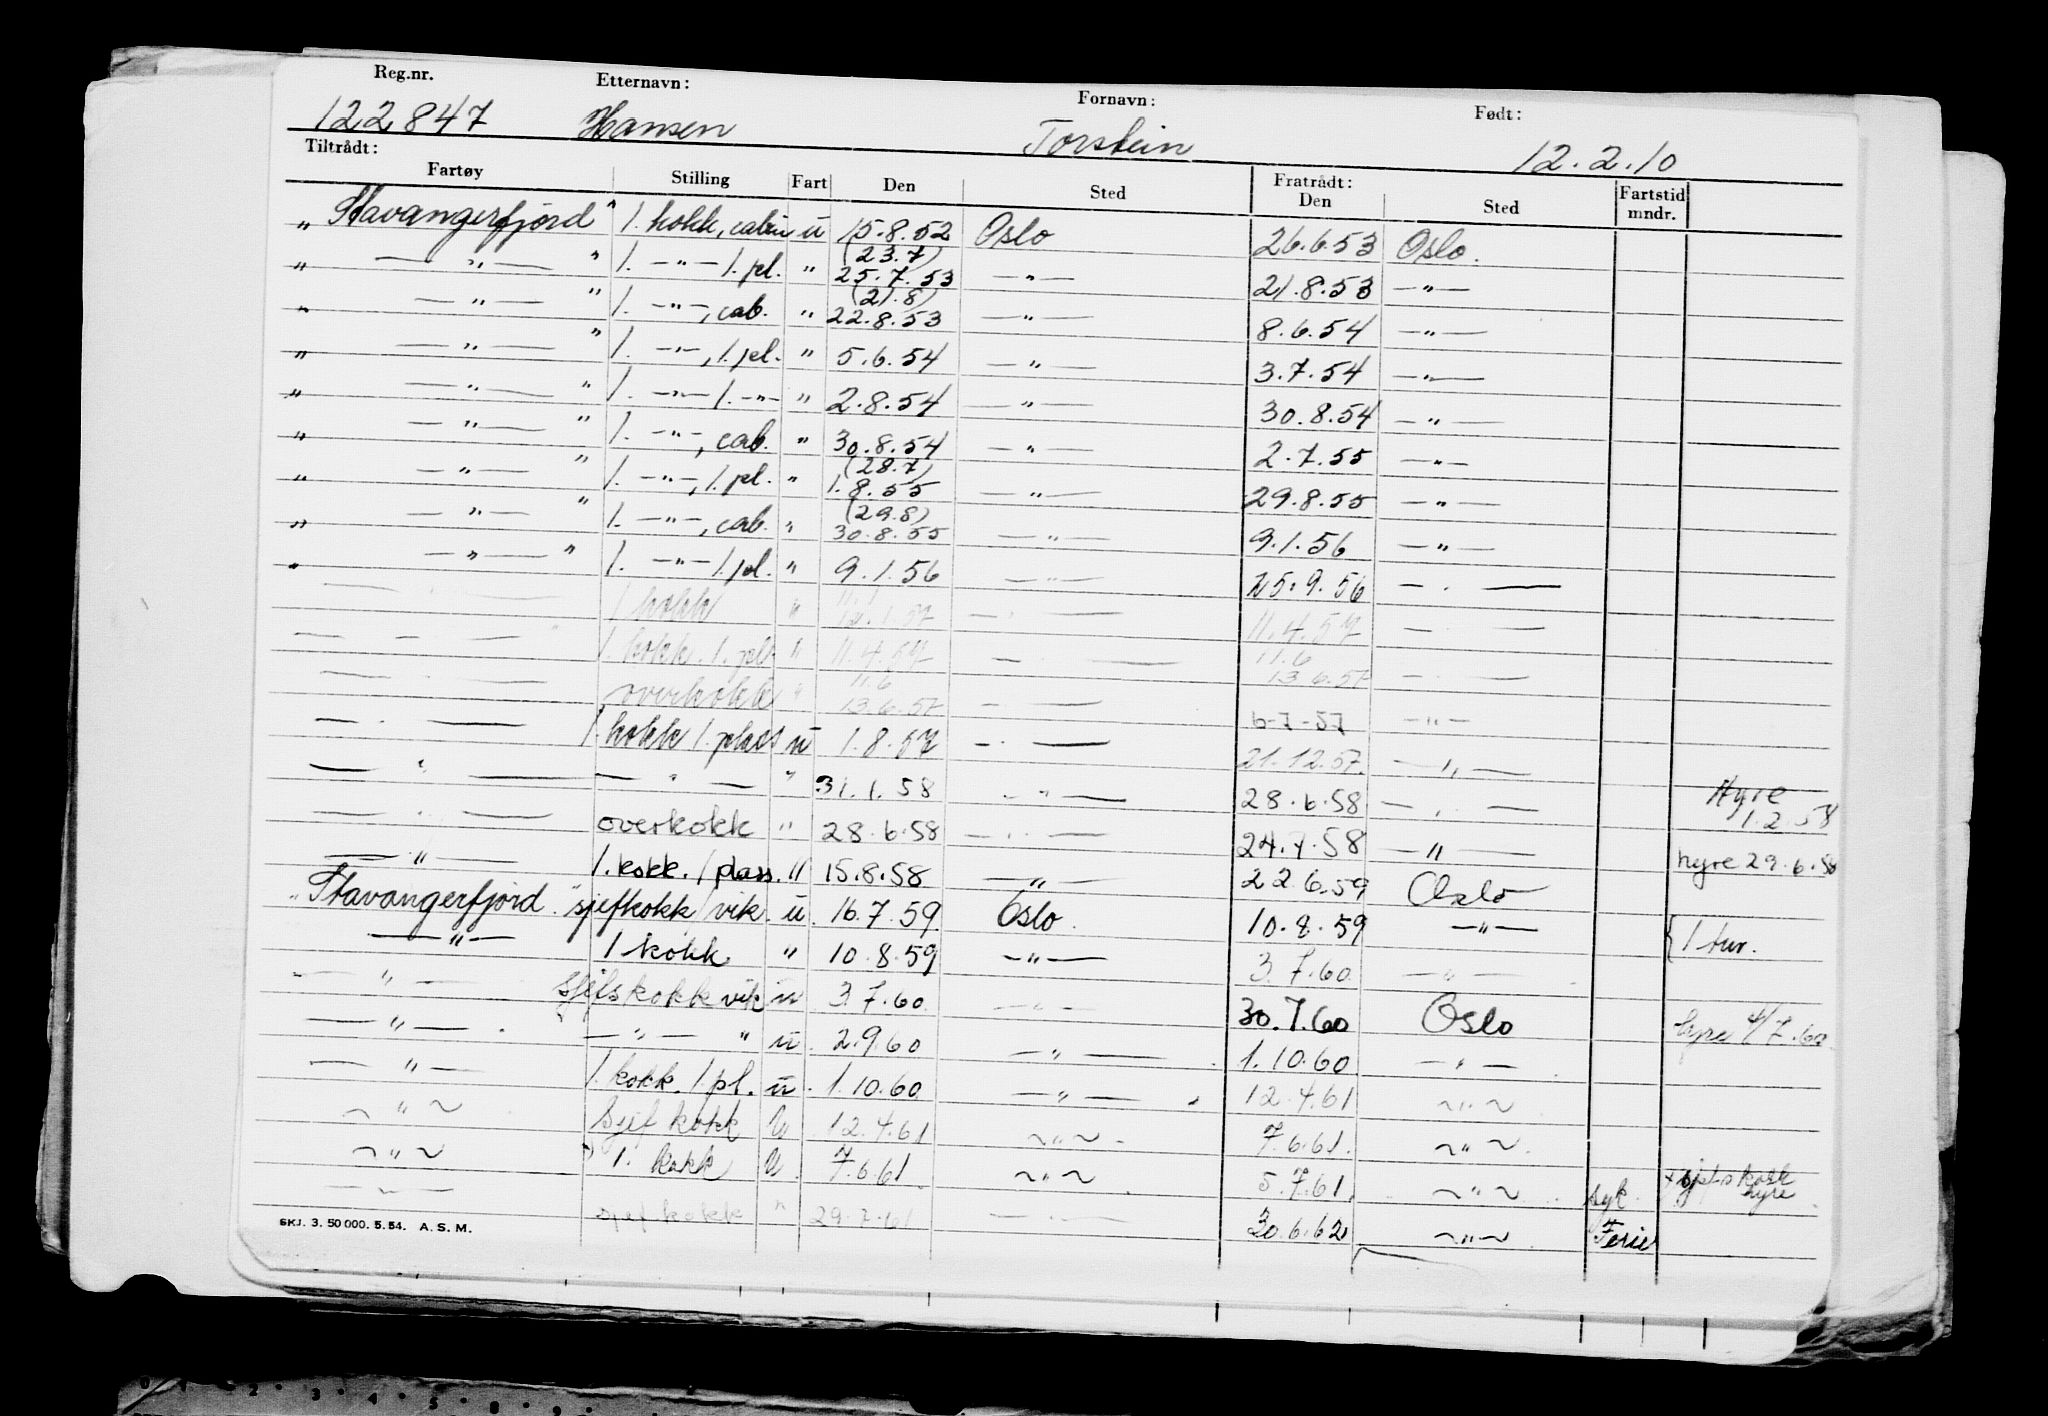 Reg.nr. Etternavn: Fornavn: Født:
122847 Hansen Torstein 12.2.10
Tiltrådt: Fratrådt:
Fartøy Stilling Fart Den Sted Den Sted Fartstid mndr.
„ Stavangerfjord " 1. kokk, cabin u 15.8.52 Oslo 26.6.53 Oslo.
„ — „ — " 1. —„— 1. pl. " (23.7) 25.7.53 — „ — 21.8.53 — „ —
„ — „ — " 1. —„—, cab. " (21.8) 22.8.53 — „ — 8.6.54 — „ —
„ — „ — " 1. —„—, 1. pl. " 5.6.54 — „ — 3.7.54 — „ —
„ — „ — " 1. —„— 1. —„— " 2.8.54 — „ — 30.8.54 — „ —
„ — „ — " 1. —„—, cab. " 30.8.54 — „ — 2.7.55 — „ —
„ — „ — " 1. —„—, 1. pl. " (28.7) 1.8.55 — „ — 29.8.55 — „ —
„ — „ — " 1. —„—, cab. " (29.8) 30.8.55 — „ — 9.1.56 — „ —
„ — „ — " 1. —„— 1. pl. " 9.1.56 — „ — 25.9.56 — . —
— — 1 kokk " — . — 11.4.57 — . —
— — — 1. kokk. 1. pl. " 11.4.57 — . — 11.6 13.6.57 — . —
— — overkokk " 11.6 13.6.57 — . — 6-7-57 — „ —
— . — 1. kokk 1. plass u 1.8.57 — . — 21.12.57. — „ —
— " — — " — " 31.1.58 — „ — 28.6.58 — . — Hyre 1.2.58
— . — overkokk " 28.6.58 — . — 24.7.58 — „ — hyre 29.6.58
— „ — 1. kokk. 1 plass. " 15.8.58 — „ — 22.6.59 Oslo
„ Stavangerfjord. " sjefkokk/vik. u. 16.7.59. Oslo. 10.8.59 — „ — { 1 tur.
— „ — 1 kokk " 10.8.59 — „ — 3.7.60. — „ —
— „ — sjefskokk vik u 3.7.60. — „ — 30.7.60 Oslo hyre 4/7.60
— „ — . — „ — " u. 2.9.60 — „ — . 1.10.60. — „ —
— „ — 1. kokk. 1. pl. u. 1.10.60. — „ — . 12.4.61 ~ „ ~
~ „ ~ Sjef kokk U 12.4.61 ~ „ ~ . 7.6.61. ~ „ ~ .
~ „ ~ 1. kokk U. 7.6.61. ~ „ ~ . 5.7.61. ~ „ ~ . syk. + sjefskokk hyre.
— „ — sjef kokk " 29.7.61 — . — 30.6.62 ~ „ ~ . Ferie
SKJ. 3. 50 000. 5. 54. A. S. M.